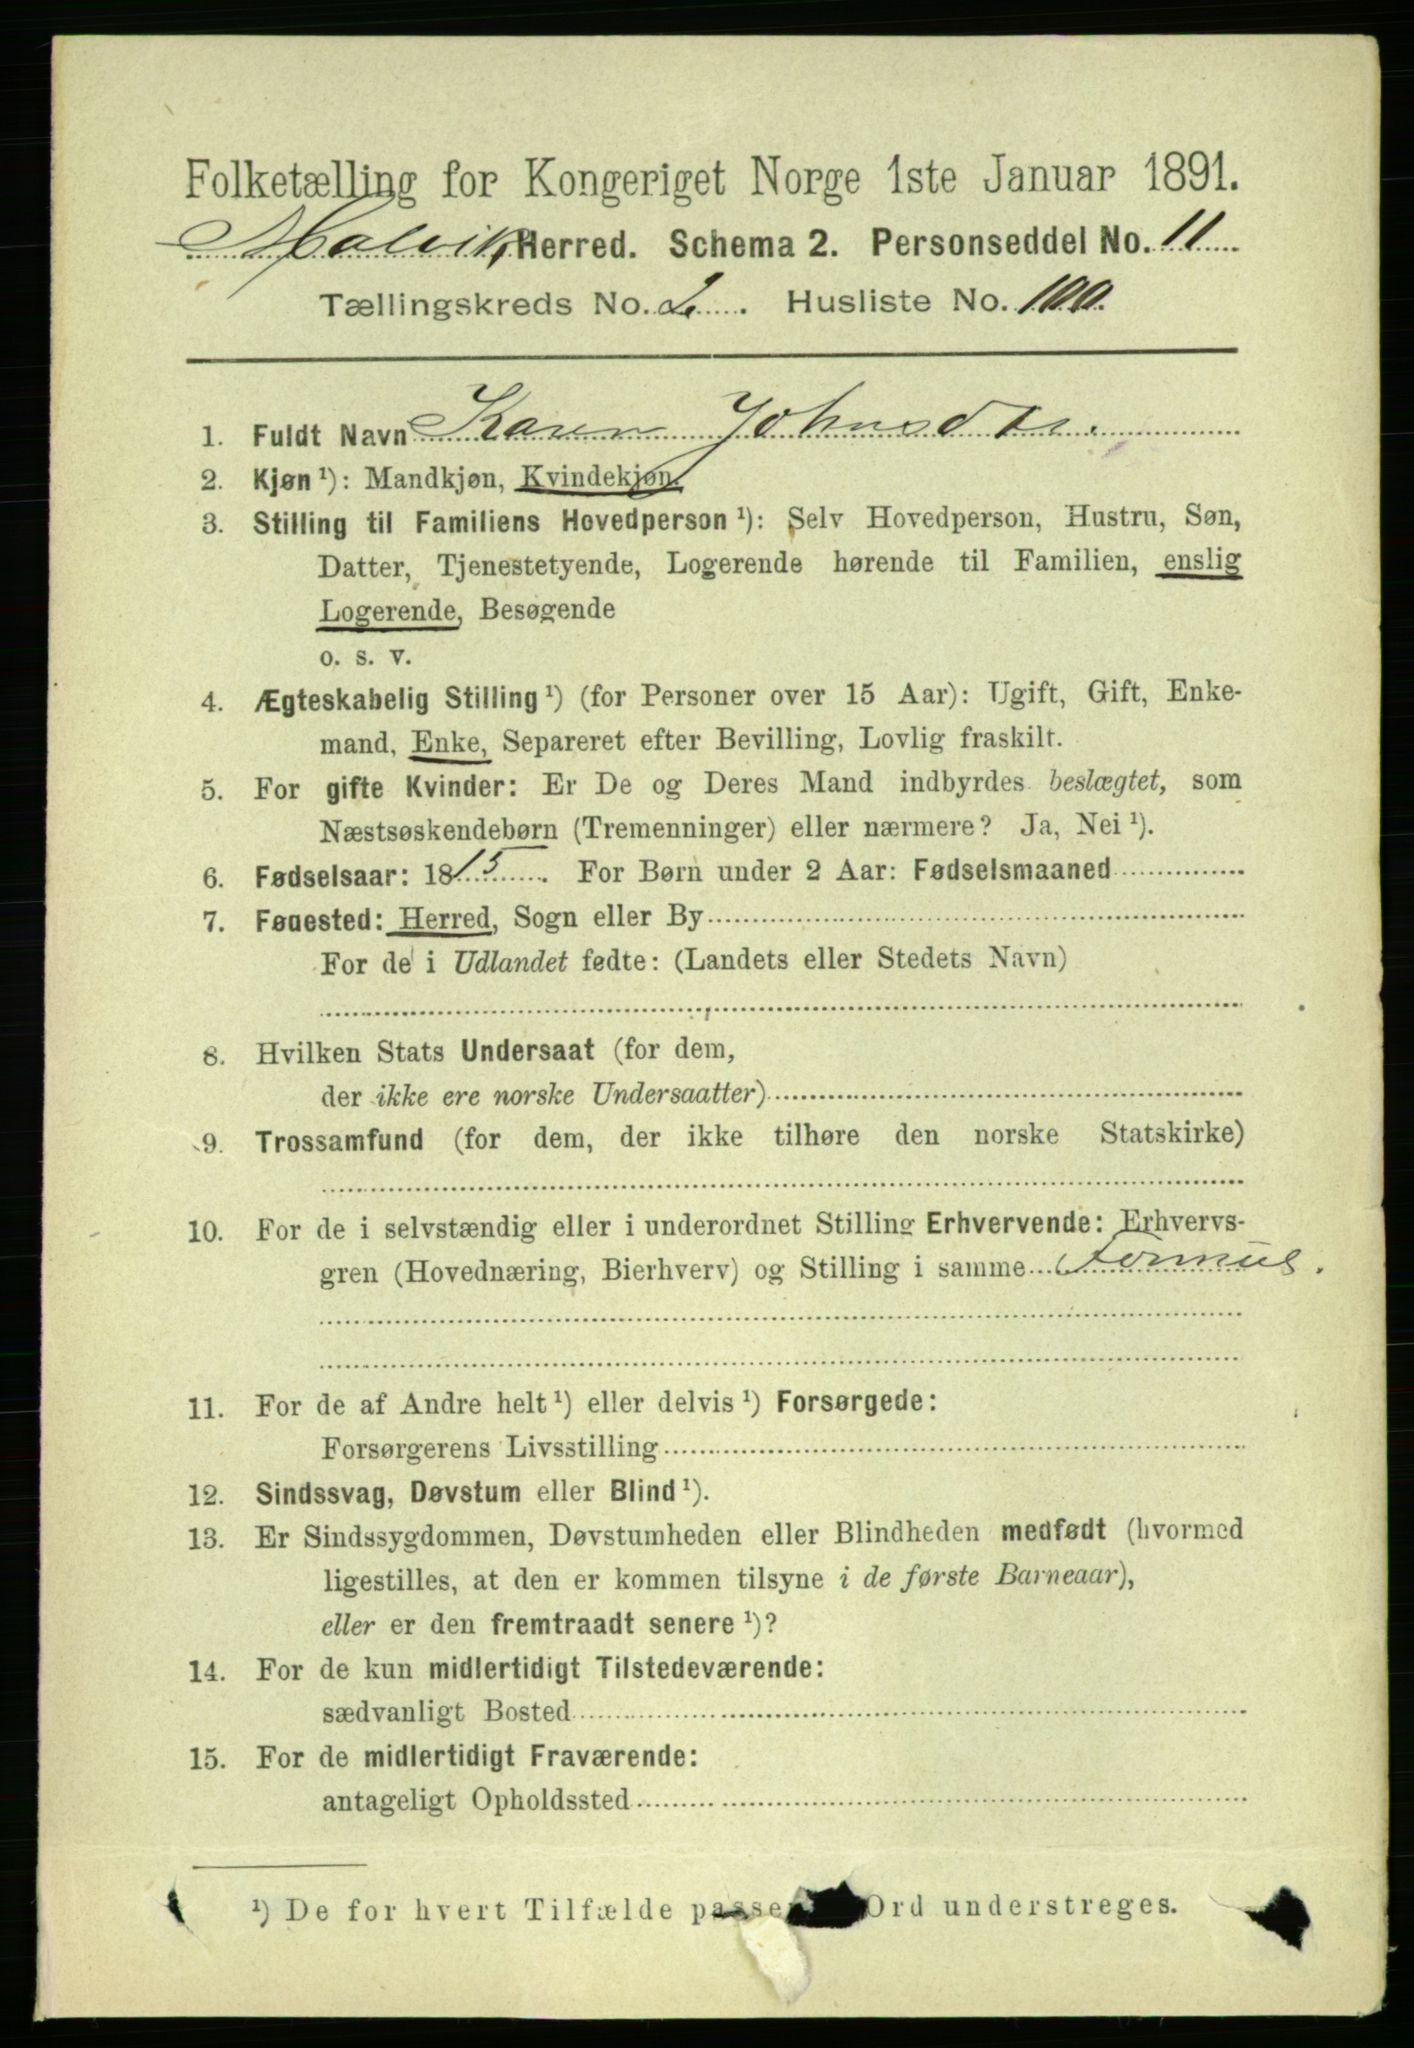 Folketælling for Kongeriget Norge 1ste Januar 1891.
Malvik Herred. Schema 2. Personseddel No. 11
Tællingskreds No. 2. Husliste No. 100.
1. Fuldt Navn Karen Johnsdtr.
2. Kjøn ¹): Mandkjøn, Kvindekjøn.
3. Stilling til Familiens Hovedperson ¹): Selv Hovedperson, Hustru, Søn,
Datter, Tjenestetyende, Logerende hørende til Familien, enslig
Logerende, Besøgende
o. s. v.
4. Ægteskabelig Stilling ¹) (for Personer over 15 Aar): Ugift, Gift, Enke-
mand, Enke, Separeret efter Bevilling, Lovlig fraskilt.
5. For gifte Kvinder: Er De og Deres Mand indbyrdes beslægtet, som
Næstsøskendebørn (Tremenninger) eller nærmere? Ja, Nei ¹).
6. Fødselsaar: 1815. For Børn under 2 Aar: Fødselsmaaned
7. Føuested: Herred, Sogn eller By
For de i Udlandet fødte: (Landets eller Stedets Navn)
8. Hvilken Stats Undersaat (for dem,
der ikke ere norske Undersaatter)
9. Trossamfund (for dem, der ikke tilhøre den norske Statskirke)
10. For de i selvstændig eller i underordnet Stilling Erhvervende: Erhvervs-
gren (Hovednæring, Bierhverv) og Stilling i samme Formue.
11. For de af Andre helt ¹) eller delvis ¹) Forsørgede:
Forsørgerens Livsstilling
12. Sindssvag, Døvstum eller Blind ¹).
13. Er Sindssygdommen, Døvstumheden eller Blindheden medfødt (hvormed
ligestilles, at den er kommen tilsyne i de første Barneaar),
eller er den fremtraadt senere ¹)?
14. For de kun midlertidigt Tilstedeværende:
sædvanligt Bosted
15. For de midlertidigt Fraværende:
antageligt Opholdssted
¹) De for hvert Tilfælde passe Ord understreges.